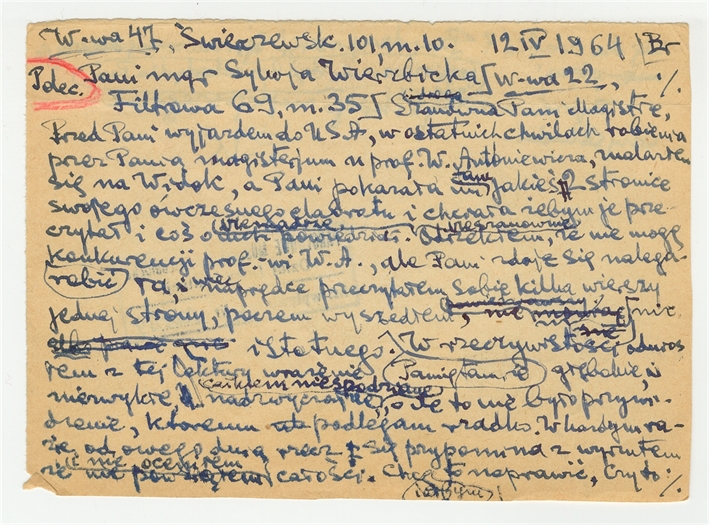 W-wa 47, Świerczewsk. 101, m. 10. 12 IV 1964 Br
Polec. Pani mgr Sylwja Wierzbicka [W-wa 22, ./.
Filtrowa 69, m. 35] Szanowna Pani Magistrze,
Przed Pani wyjazdem do USA, w ostatnich chwilach robienia
przez Panią magisterjum u prof. W. Antoniewicza, znalazłem
się na Widok, a Pani pokazała mi tam jakieś 2 stronice
swojego ówczesnego elaboratu i chciała żebym je prze-
czytał i coś o powiedział. Odrzekłem, że nie mogę
robić konkurencji prof. W. A., ale Pani zdaje się nalega-
ła, i więc prędce przeczytałem sobie kilka wierszy
jednej strony, poczem wyszedłem, nie
istotnego. W rzeczywistości odnios-
łem z tej lektury wrażenie głębokie, i
niezwykłe, nadzwyczajne, całkiem niespodziane. Pamiętam, że
o Ile to nie było przywi-
dzenie, któremu podlegam rzadko. W każdym ra-
zie, od owego dnia rzecz ta się przypomina z wyrzutem
że nie oceniłem całości. Chcę to naprawić, Czy to ./.